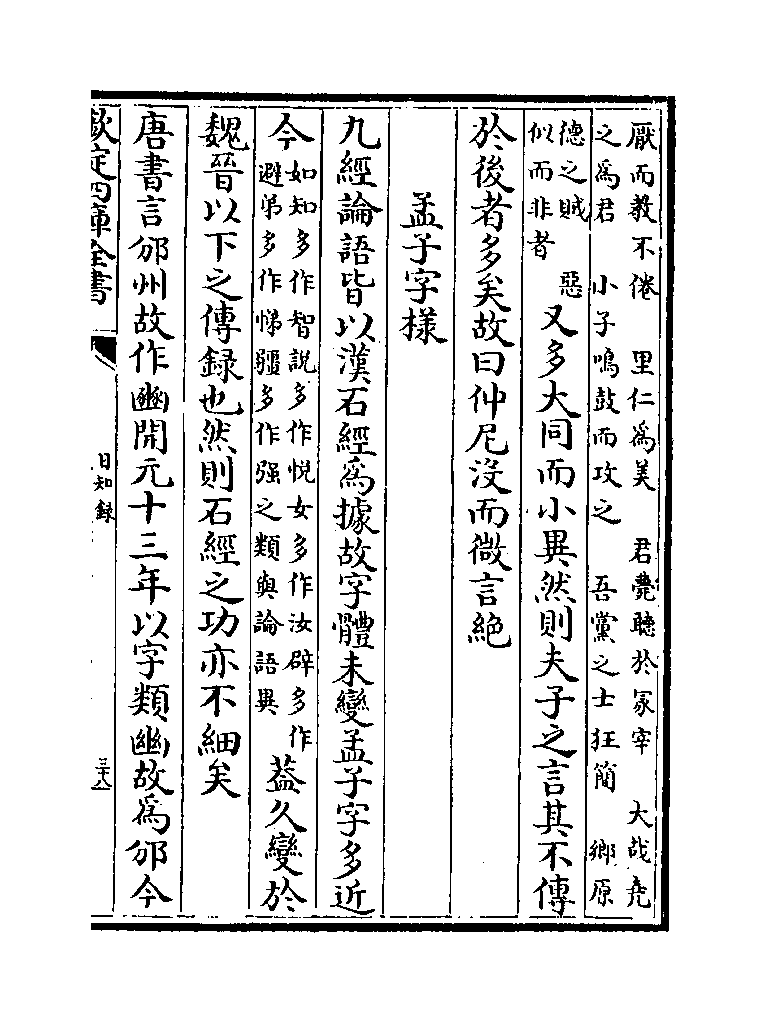 厭而教不倦　里仁為美　君薨聽於冢宰　大哉堯
之為君　小子鳴鼓而攻之　吾黨之士狂簡　鄉原
德之賊　惡
似而非者
又多大同而小異然則夫子之言其不傳
於後者多矣故曰仲尼没而微言絶
孟子字様
九經論語皆以漢石經為據故字體未變孟子字多近
今
如知多作智説多作悅女多作汝辟多作
避弟多作悌疆多作强之類與論語異
葢久變於
魏晉以下之傳録也然則石經之功亦不細矣
唐書言邠州故作豳開元十三年以字類幽故為邠今
欽定四庫全書
日知録
三十八